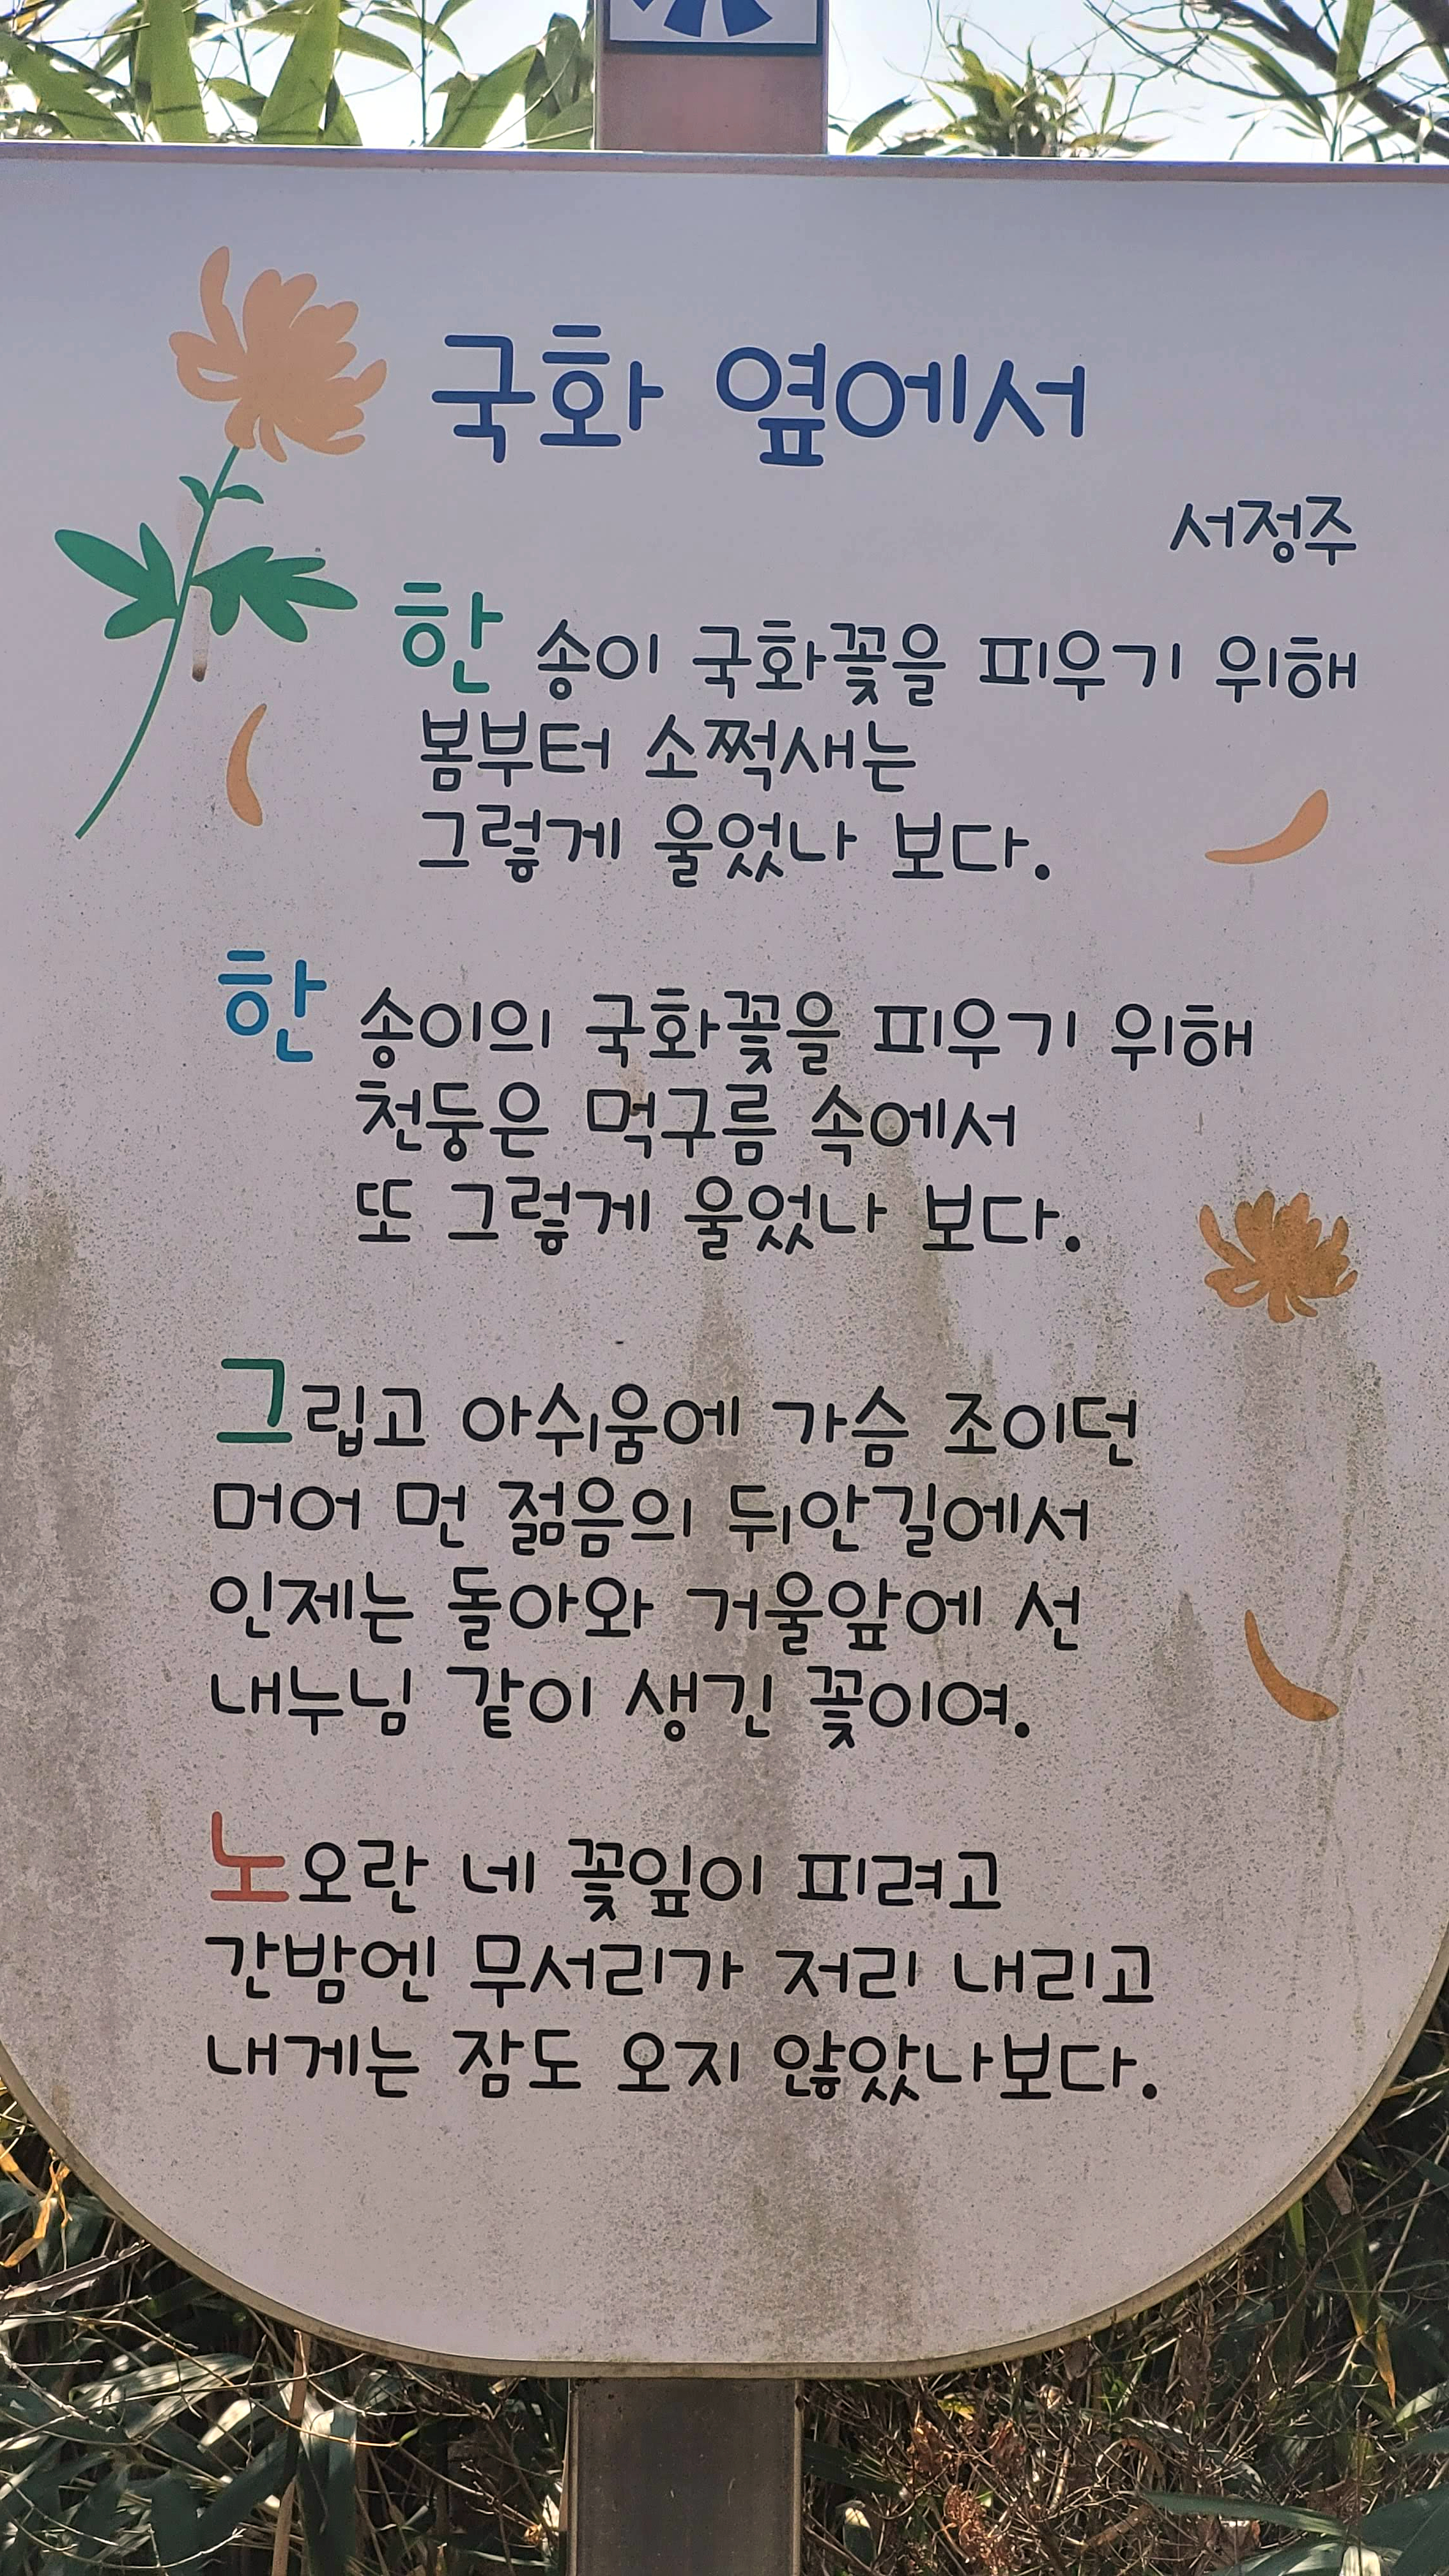 국화 옆에서
서정주
한 송이 국화꽃을 피우기 위해
봄부터 소쩍새는
그렇게 울었나 보다.
한 송이의 국화꽃을 피우기 위해
천둥은 먹구름 속에서
또 그렇게 울었나 보다.
그립고 아쉬움에 가슴 조이던
머어 먼 젊음의 뒤안길에서
인제는 돌아와 거울앞에 선
내누님 같이 생긴 꽃이여.
노오란 네 꽃잎이 피려고
간밤엔 무서리가 저리 내리고
내게는 잠도 오지 않았나보다.